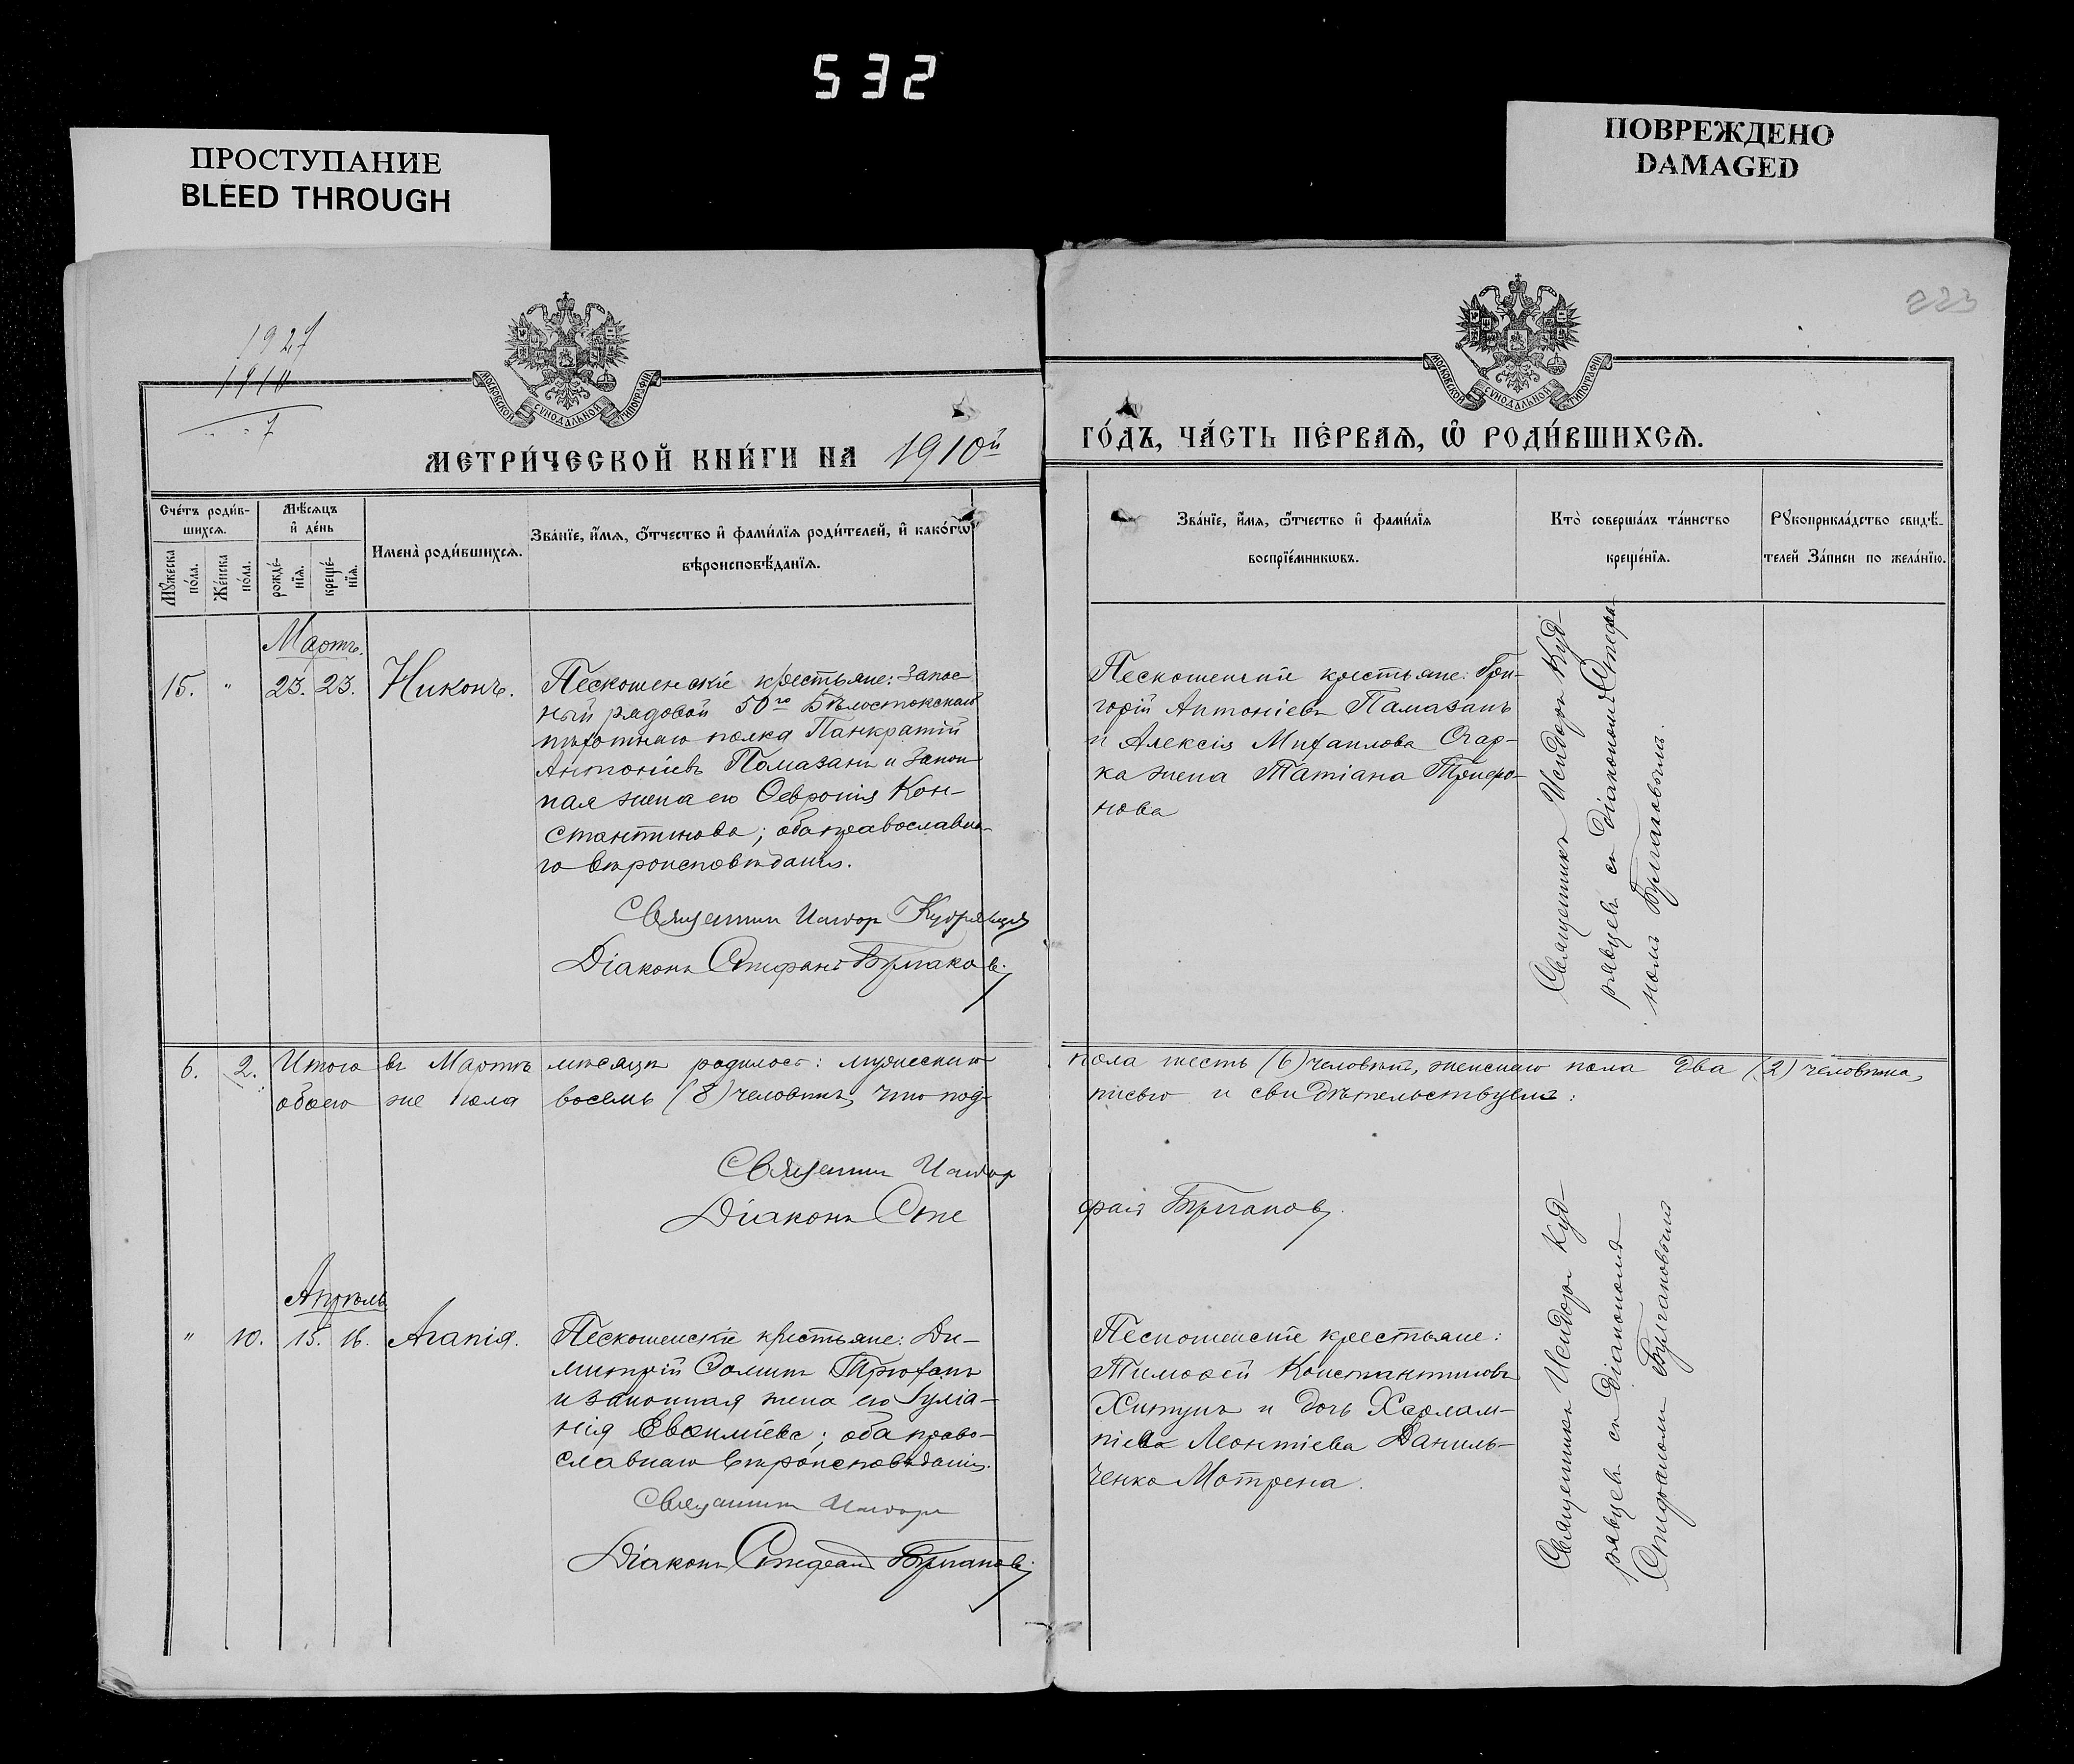 532
ПРОСТУПАНИЕ
BLEED THROUGH
ПОВРЕЖДЕНО
DAMAGED
1927
1910
7
223
МОСКОВСКОЙ СѴНОДАЛЬНОЙ ТИПОГРАФІИ
МОСКОВСКОЙ СѴНОДАЛЬНОЙ ТИПОГРАФІИ
МЕТРИ́ЧЕСКОЙ КНИ́ГИ НА 1910й
ГО́ДЪ, ЧА́СТЬ ПЕ́РВАѦ, Ѽ РОДИ́ВШИХСѦ.
Сче́тъ роди́в-
шихсѧ.
Мꙋ́жеска по́ла.
Же́нска по́ла.
Мѣ́сѧцъ
и҆ де́нь
рожде́-
нїѧ.
креще́-
нїѧ.
И҆мена̀ роди́вшихсѧ.
Зва́нїе, и҆́мѧ, ѻ҆́тчество и҆ фами́лїѧ роди́телей, и҆ како́гѡ
вѣроисповѣ́данїѧ.
Зва́нїе, и҆́мѧ, ѻ҆́тчество и҆ фами́лїѧ
воспрїе́мникѡвъ.
Кто̀ соверша́лъ та́инство
креще́нїѧ.
Рꙋкоприкла́дство свидѣ́-
телей за́писи по жела́нїю.
Мартъ.
15. " 23. 23. Никонъ.
Пескошенскіе крестьяне: запас
ный рядовой 50го Бѣлостокскаго
пѣхотнаго полка Панкратій
Антоніевъ Помазанъ и закон
ная жена его Ѳевронія Кон-
стантинова; оба православна-
го вѣроисповѣданія.
Священникъ Исидоръ Кудрявцевъ
Діаконъ Стефанъ Булгаковъ.
Пескошенскіе крестьяне: Гри-
горій Антоніевъ Памазанъ
и Алексія Михаилова Очар-
ка жена Татіана Трифо-
нова
Священникъ Исидоръ Куд-
рявцевъ съ діакономъ Стефа-
номъ Булгаковымъ.
6. 2. Итого въ Мартѣ мѣсяцѣ родилось: мужескаго
пола шесть (6) человѣкъ, женскаго пола два (2) человѣка,
обоего же пола восемь (8) человѣкъ, что под-
писью и свидѣтельствуемъ:
Священникъ Исидоръ
Діаконъ Сте
фанъ Булгаковъ.
Апрѣль
" 10. 15. 16. Агапія.
Пескошенскіе крестьяне: Ди-
митрій Ѳоминъ Трюханъ
и законная жена его Іуліа-
нія Евѳиміева; оба право-
славнаго вѣроисповѣданія.
Священникъ Исидоръ
Діаконъ Стефанъ Булгаковъ.
Пескошенскіе крестьяне:
Тимоѳей Константиновъ
Хитунъ и дочь Харлам-
піева Леонтіева Даниль-
ченко Мотрена.
Священникъ Исидоръ Куд-
рявцевъ съ діакономъ
Стефаномъ Булгаковымъ